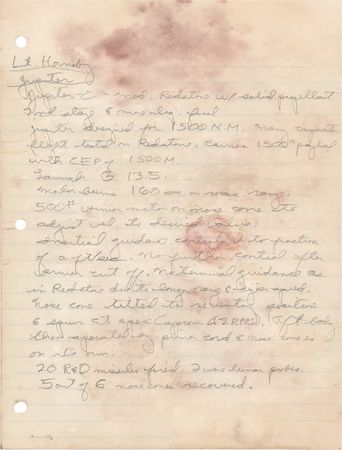 Lt. Hornsby
Jupiter
Jupiter C - mod. Redstone w/ solid propellant
2nd stage & mag. fuel
Jupiter designed for 1500 N.M. many
flight tested on Redstone. Carries 1500# payload
with CEP of 1500 M
Launch @ 13.5.
Motor burns 160 sec on max. range.
500# vernier motor on nose cone to
adjust vel. to desired value.
Inertial guidance controls V to fraction
of a ft/sec. No further control after
vernier cut off. No terminal guidance as
in Redstone due to long range & high speed.
Nose cone tilted to re-entry position
& spun at apex (approx. RPM),
then separated by prima cord & nose cone is
on its own.
20 R&D missiles fired. 2 were lunar probes.
5 out of 6 nose cones recovered.